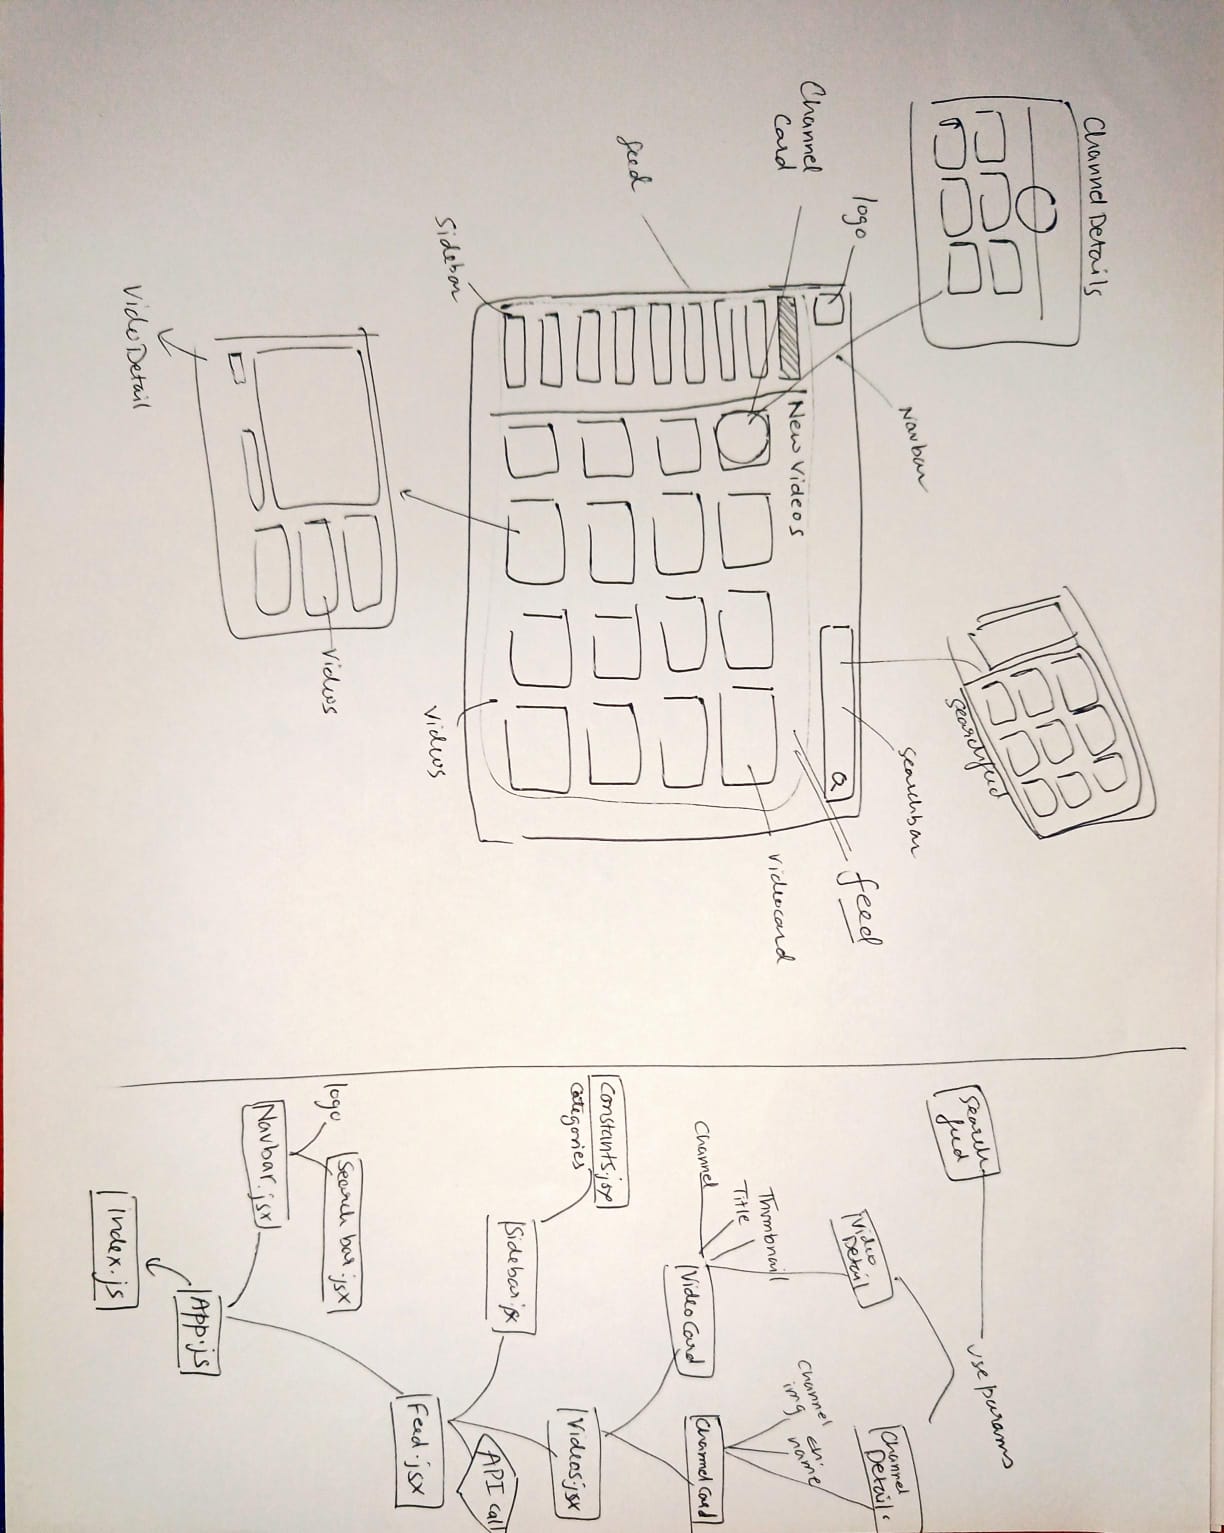 Channel Details
Searchfeed
Navbar
Searchbar
logo
feed
Channel
Card
New Videos
Videocard
feed
Sidebar
Videos
Videos
VideoDetail
Search
feed
use params
Video
Detail
Channel
Detail.
Channel
img
ch.
name
Thumbnail
Title
Channel
VideoCard
Channel Card
Constants.jsx
Categories
Videos.jsx
Sidebar.jsx
API call
Feed.jsx
logo
Search bar.jsx
Navbar.jsx
App.js
index.js